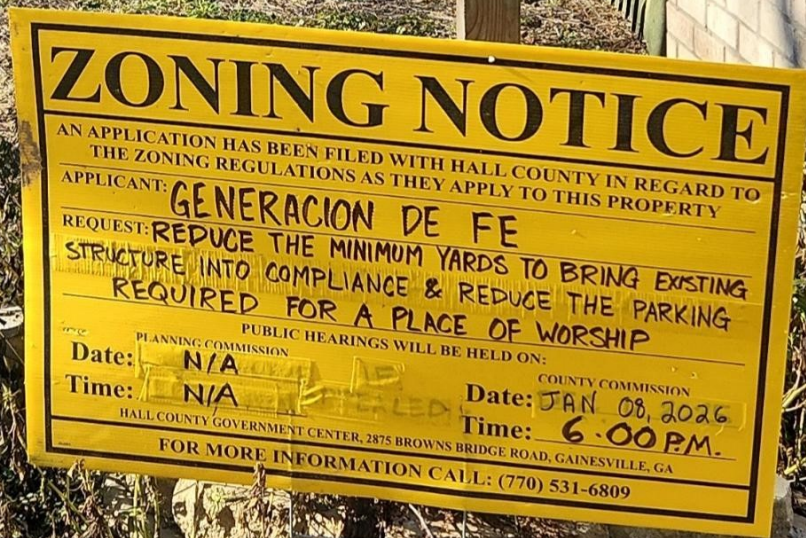 ZONING NOTICE
AN APPLICATION HAS BEEN FILED WITH HALL COUNTY IN REGARD TO
THE ZONING REGULATIONS AS THEY APPLY TO THIS PROPERTY
APPLICANT: GENERACION DE FE
REQUEST: REDUCE THE MINIMUM YARDS TO BRING EXISTING
STRUCTURE INTO COMPLIANCE & REDUCE THE PARKING
REQUIRED FOR A PLACE OF WORSHIP
PUBLIC HEARINGS WILL BE HELD ON:
PLANNING COMMISSION
Date: N/A
Time: N/A
COUNTY COMMISSION
Date: JAN 08, 2026
Time: 6:00 P.M.
HALL COUNTY GOVERNMENT CENTER, 2875 BROWNS BRIDGE ROAD, GAINESVILLE, GA
FOR MORE INFORMATION CALL: (770) 531-6809